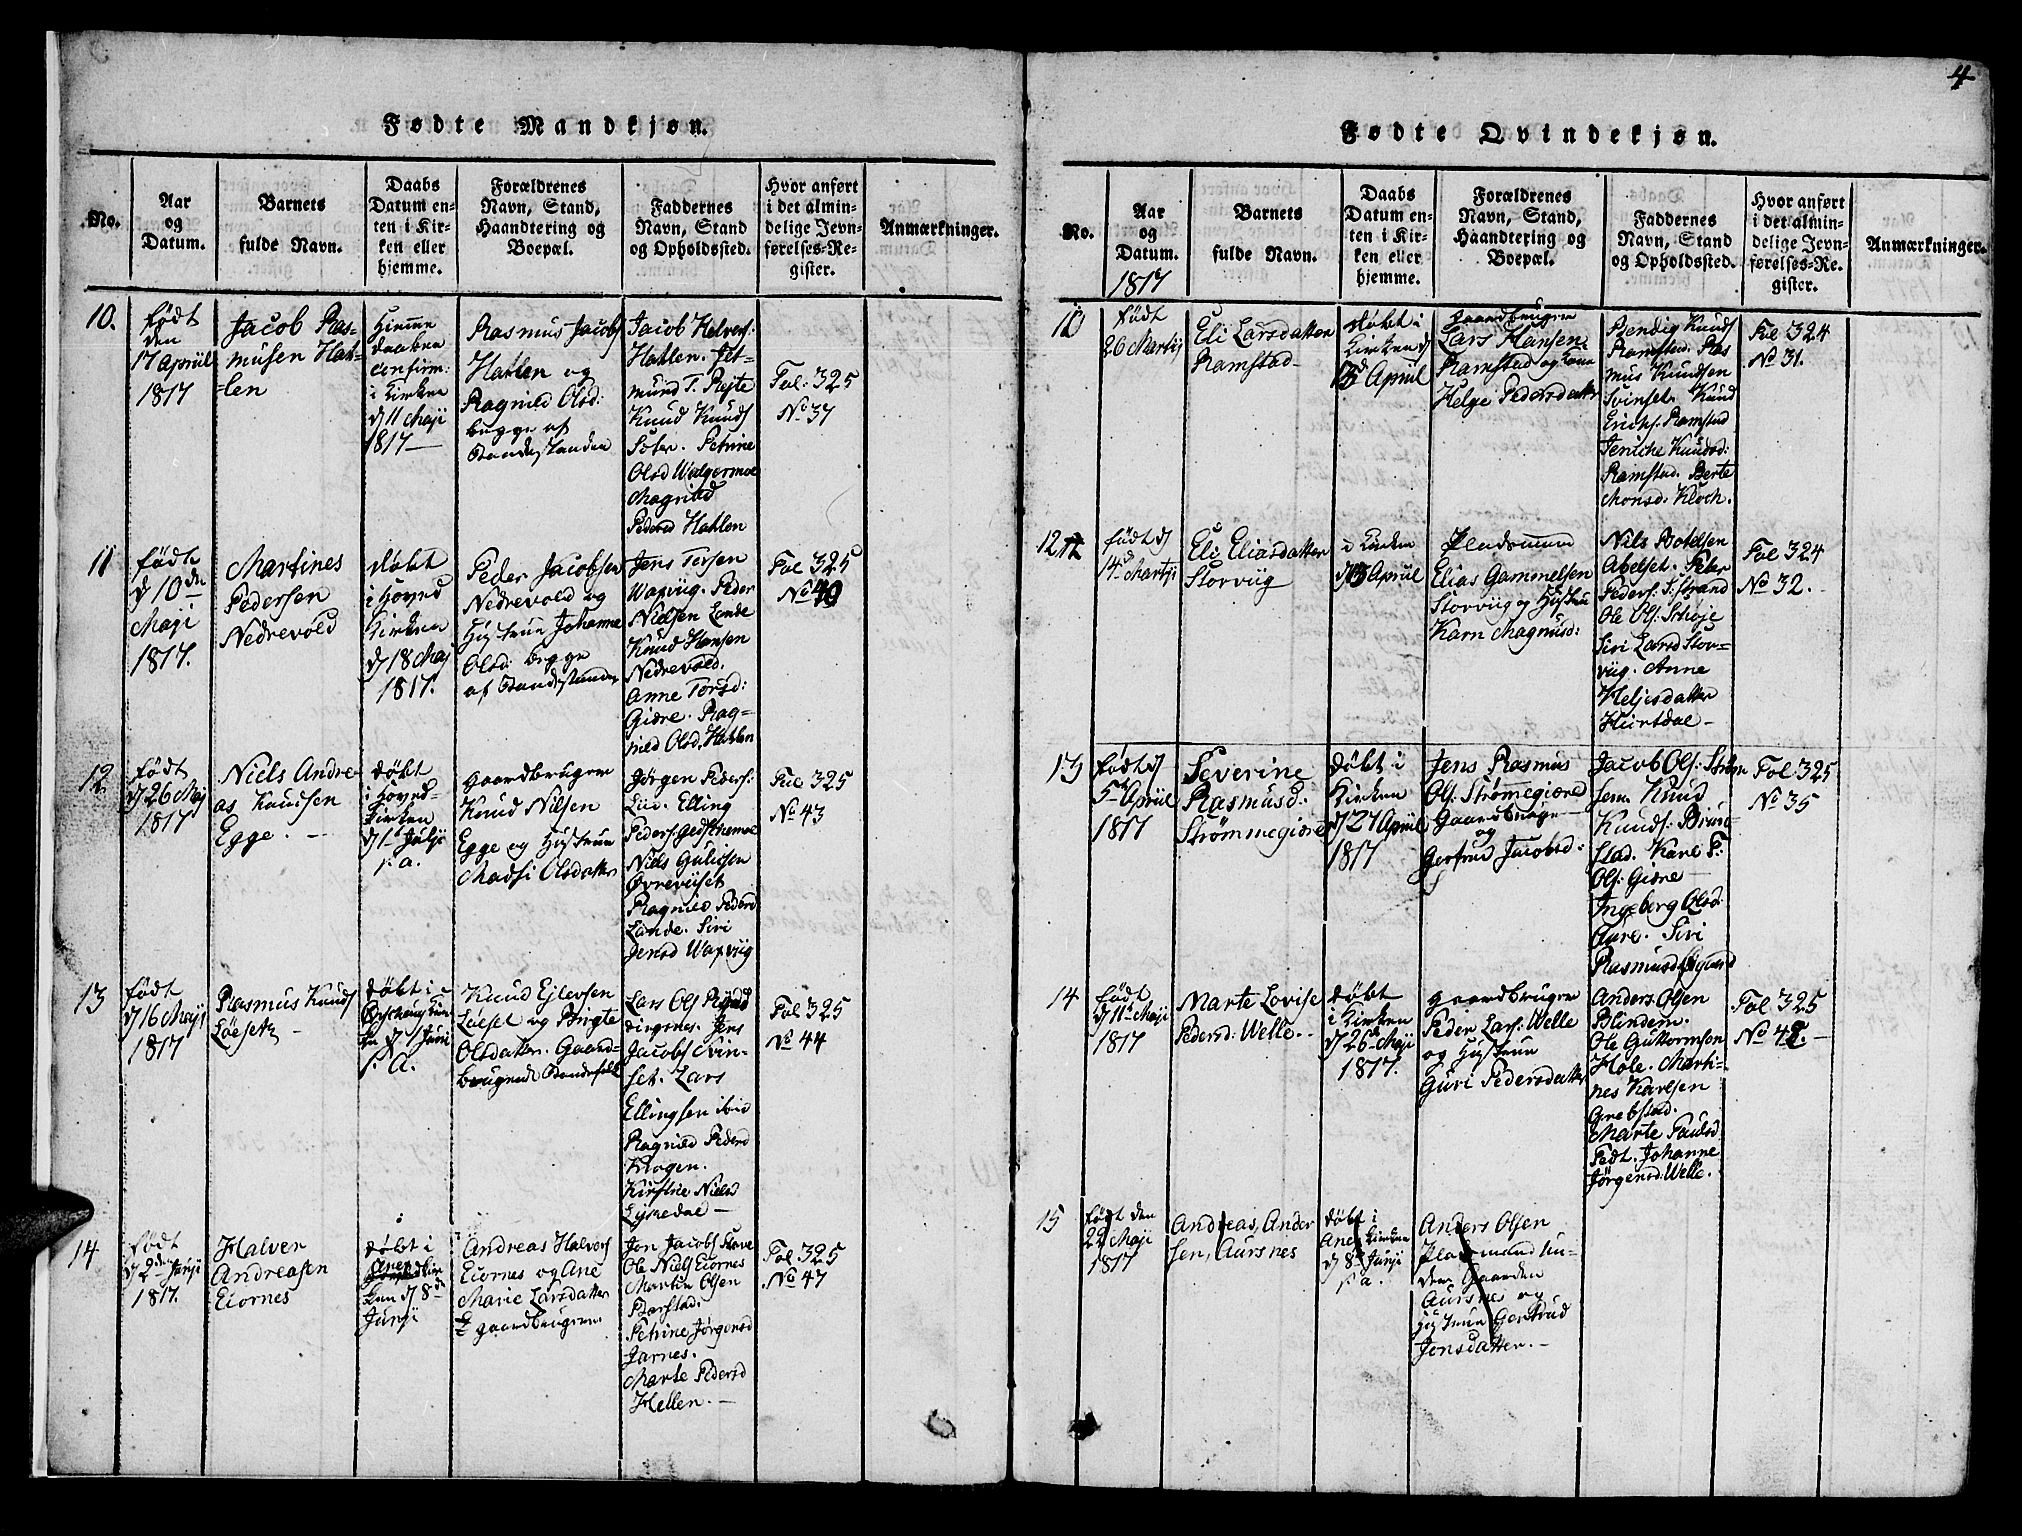 4
Fødte Mandkjøn.
No.
Aar
og
Datum.
Barnets
fulde Navn.
Daabs
Datum en-
ten i Kir-
ken eller
hjemme.
Forældrenes
Navn, Stand,
Haandtering og
Boepæl.
Faddernes
Navn, Stand
og Opholdsted.
Hvor anført
i det almin-
delige Jevn-
førelses-Re-
gister.
Anmærkninger.
10.
født
den
17 Apriil
1817
Jacob Ras-
musen Hat-
len
Hiemme
døbt
confirm:
i Kirken
d 11 Maji
1817 —
Rasmus Jacobs
Hatlen og
Ragnild Olsd:
begge af
Bondestanden
Jacob Halvors:
Hatlen. Jet-
mund T. Rejte
Knud Knuds
Soter. Petrine
Olsd Walgermoe
Magnild
Pedersd Hatlen
Fol: 325
No 37
11
født
d 10 de
Maji
1817.
Martines
Pedersen
Nedrevold
døbt
i Hoved
Kirken
d 18 Maj
1817.
Peder Jacobsen
Nedrevold og
Hustrue Johanne
Olsd: begge
af Bondestanden
Jens Torsen
Waxviig. Peder
Nielsen Lande
Knud Hansen
Nedrevold.
Anne Torsd:
Giære. Rag-
nild Olsd. Hatlen
Fol 325
No 40
12
født
d 26 Maj
1817
Niels Andre
as Knudsen
Egge. —
døbt
i Hoved-
Kirken
d 1 Julji
s. a.
Gaardbruger
Knud Nilsen
Egge og Hustrue
Madsi Olsdatter
Jørgen Peders:
Lie. Elling
Peders: Gedskemoe
Niels Gulichsen
Øvreviset
Ragnild Pedersd
Lande. Siri
Jensd Waxviig
Fol 325
No 43
13
født
d 16 Maji
1817
Rasmus Knuds
Løeseth —
døbt i
Ørschoug Kir-
ken d 1 Junii
s. a.
Knud Ejlevsen
Løeset og Birgte
Olsdatter. Gaard-
brugende Bondefolk
Lars Ols
Jens
Jacobs Svin-
set. Lars
Ellingsen ibid
Ragnild Pedersd
Klogen.
Kirstine Nielsd
Lyshedal —
Fol 325
No 44
14
født
d 2 den Junji
1817.
Halver
Andreasen
Eiornes
døbt i
Anes
Kir
ken d 8 de
Junji
Andreas Halvors
Eiornes og Ane
Marie Larsdatter
E Gaardbrugere.
Jon Jacobs Stave
Ole Niels Eiornes
Martin Olsen
Barstad.
Petrine Jørgensd
Jarnes.
Marte Pedersd
Hellen. —
Fol 325
No 47
Fødte Qvindekjøn.
No.
Aar
og
Datum.
1817
Barnets
fulde Navn.
Daabs
Datum en-
ten i Kir-
ken eller
hjemme.
Forældrenes
Navn, Stand,
Haandtering og
Boepæl.
Faddernes
Navn, Stand
og Opholdssted.
Hvor anført
i det almin-
delige Jevn-
førelses-Re-
gister.
Anmærkninger.
født
26 Martji
Eli Larsdatter
Ramstad —
døbt i
Kirken d
13 Apriil
Gaardbruger
Lars Hansen
Ramstad og Kone
Helge Pedersdatter
Bendig Knuds
Ramstad. Ras
mus Knudsen
Svinset. Knud
Erichs. Ramstad
Jeniche Knudsd:
Ramstad. Berte
Monsd. Kloch.
Fol 324
No 31.
12
født d
14 Martji
Eli Eliasdatter
Storviig
i Kirken
d 13 Apriil
Pladsmand
Elias Gammelsen
Storviig og Hustrue
Karn Magnusd:
Nils Botelsen
Abelset. Peter
Peders: S: Strand
Ole Ols: Schoje
Siri Larsd Stor-
viig. Anne
Heljesdatter
Hiortdal —
Fol 324
No 32.
13
født d
5 Apriil
1817
Severine
Rasmusd:
Strømmegiære
døbt i
Kirken
d 27 Apriil
1817
Jens Rasmus
Ols: Strømegiære
Gaardbruger —
og
Gertrud Jacobsd:
Jacob Ols: Strøm
sem. Knud
Knuds: Bruu-
stad. Karl P:
Ols: Giære —
Ingeborg Olsd:
Aure. Siri
Rasmusd
Fol 325
No 35
14
født
d 11 Maji
1817
Marte Lovise
Pedersd: Welle. —
døbt
i Kirken
d 26 Maji
1817.
Gaardbruger
Peder Lars: Welle
og Hustrue
Guri Pedersdatter
Anders Olsen
Blindem.
Ole Guttormsen
Hole. Marti-
nes Karlsen
Grebstad.
Marte Paulsd
Fedt. Johanne
Jørgensd: Welle.
Fol 325
No 42. —
15
født den
22 Maji
1817
Andreas, Ander
sen, Aursnes
døbt i
Anes Kirken
d 8 Junji
s. a.
Anders Olsen
Pladsmand un-
der Gaarden
Aursnes og
Hustrue Gertrud
Jonsdatter. —